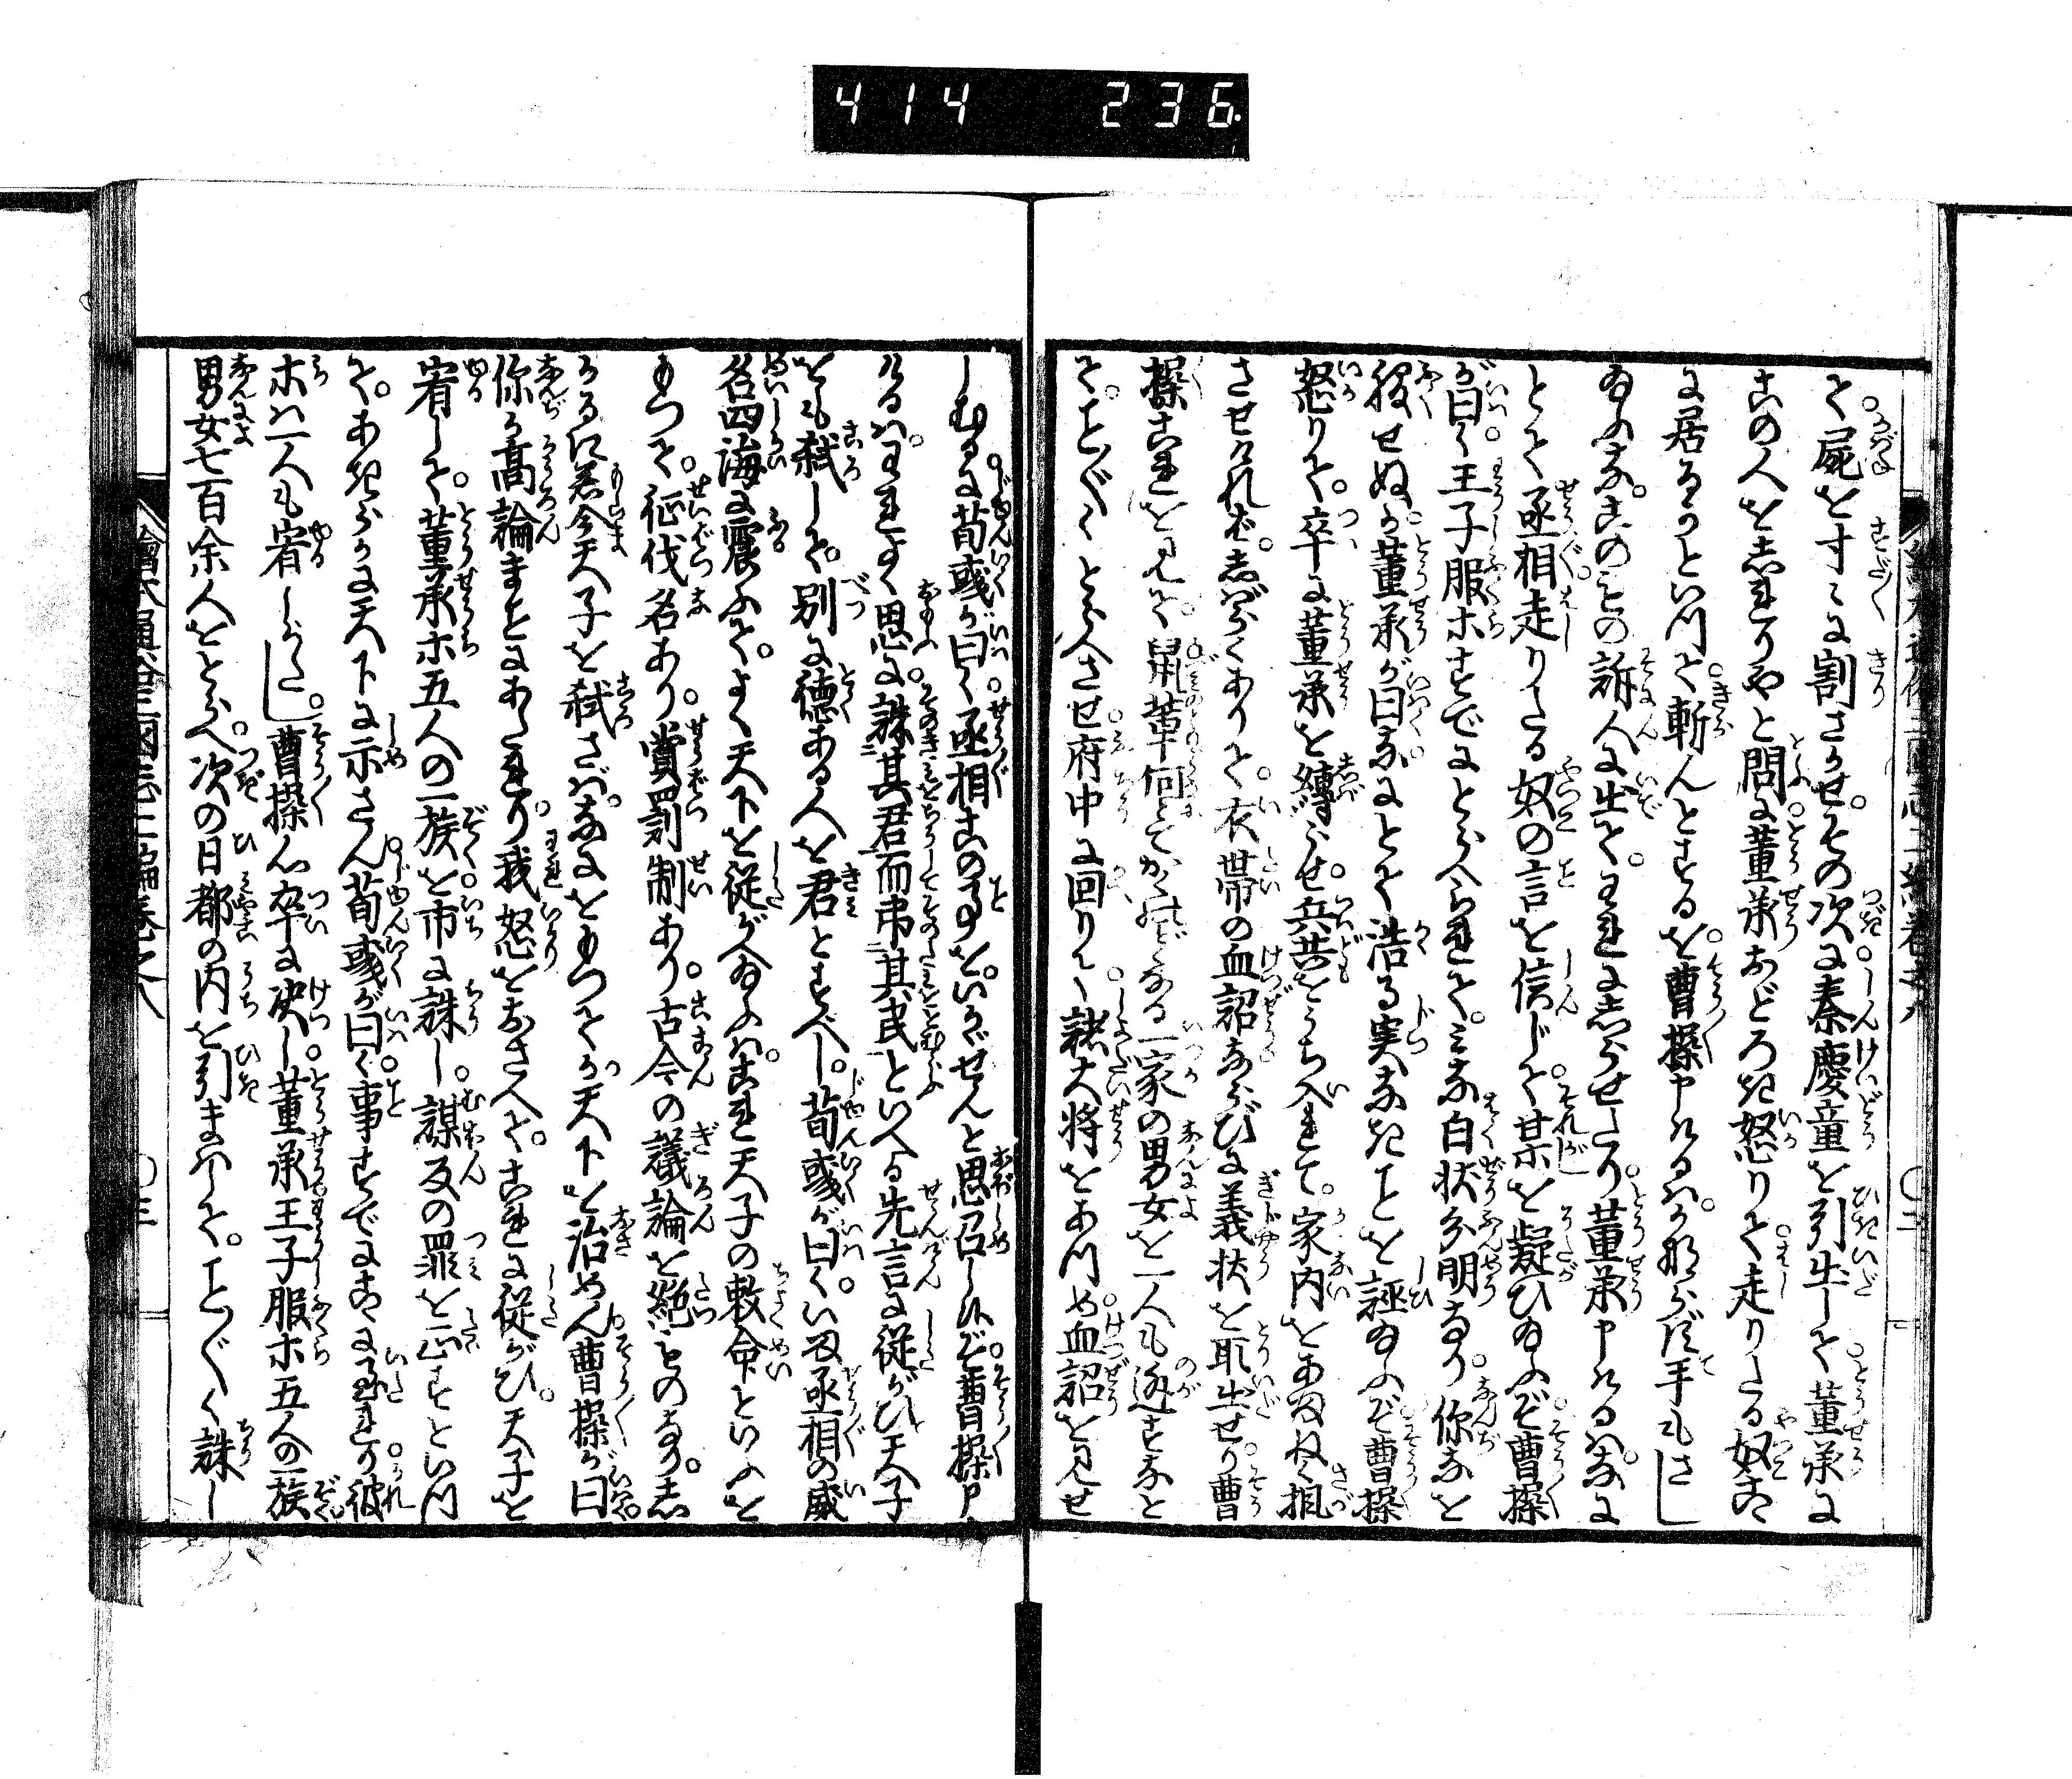 414 236
て屍を寸々に割さらせ。その次に秦慶童を引出して董承に
この人をしれりやと問に董承おどろき怒りて走りたる奴こゝ
に居るかといつて斬んとするを。曹操申けるは。かならず手もさし
ゐふな。このものゝ訴人に出て。われにしらせたり董承申けるはなに
とて丞相走りたる奴の言を信じて某を疑ひゐふぞ曹操
が曰く王子服ホすでにとらへられて。みな白状分明なり你なを
服せぬか董承が曰なにとて浩る実なきことを誣ゐふぞ曹操
怒りて。卒に董承を縛らせ。兵共をうち入れて。家内をあまねく捜
させければ。しばらくありて衣帯の血詔ならびに義状を取出せり曹
操これを見て。鼠輩何とてかくのごとくなる一家の男女を一人も逃すなと
て。ことごとくとらへさせ府中に回りて諸大将をあつめ血詔を見せ
しむるに荀彧が曰く丞相この事を。いかゞせんと思召し候ぞ。曹操申
けるは。われよく思に。誅其君而弔其民といへる先言に従がひ天子
をも弑して。別に徳ある人を君とすべし。荀彧が曰くいま丞相の威
名四海に震ふて。よく天下を従がへゐふは。これ天子の敕命といふを
もつて。征伐名あり。賞罰制あり古今の議論を絶ものなり。し
かるに君今天子を弑さば。なにをもつてか天下を治めん曹操が曰
你が高論まことにあたれり。我怒をおさへて。これに従がひ。天子を
宥して。董承ホ五人の一族を市に誅し。謀反の罪を正すといつ
て。あきらかに天下に示さん荀彧が曰く事すでにこゝに到れり彼
ホは一人も宥しがたし。曹操心卒に決し。董承王子服ホ五人の一族
男女七百余人をとらへ。次の日都の内を引まはして。ことごとく誅し